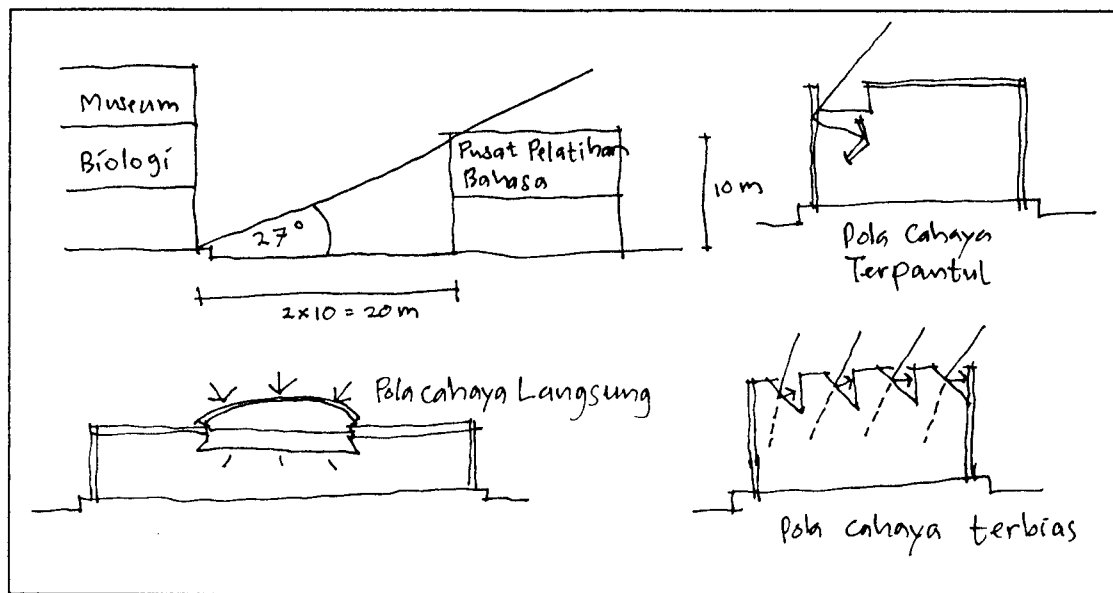 Museum
Biologi
Pusat Pelatihan
Bahasa
10 m
27°
2x10 = 20 m
Pola Cahaya
Terpantul
Pola cahaya Langsung
Pola cahaya terbias